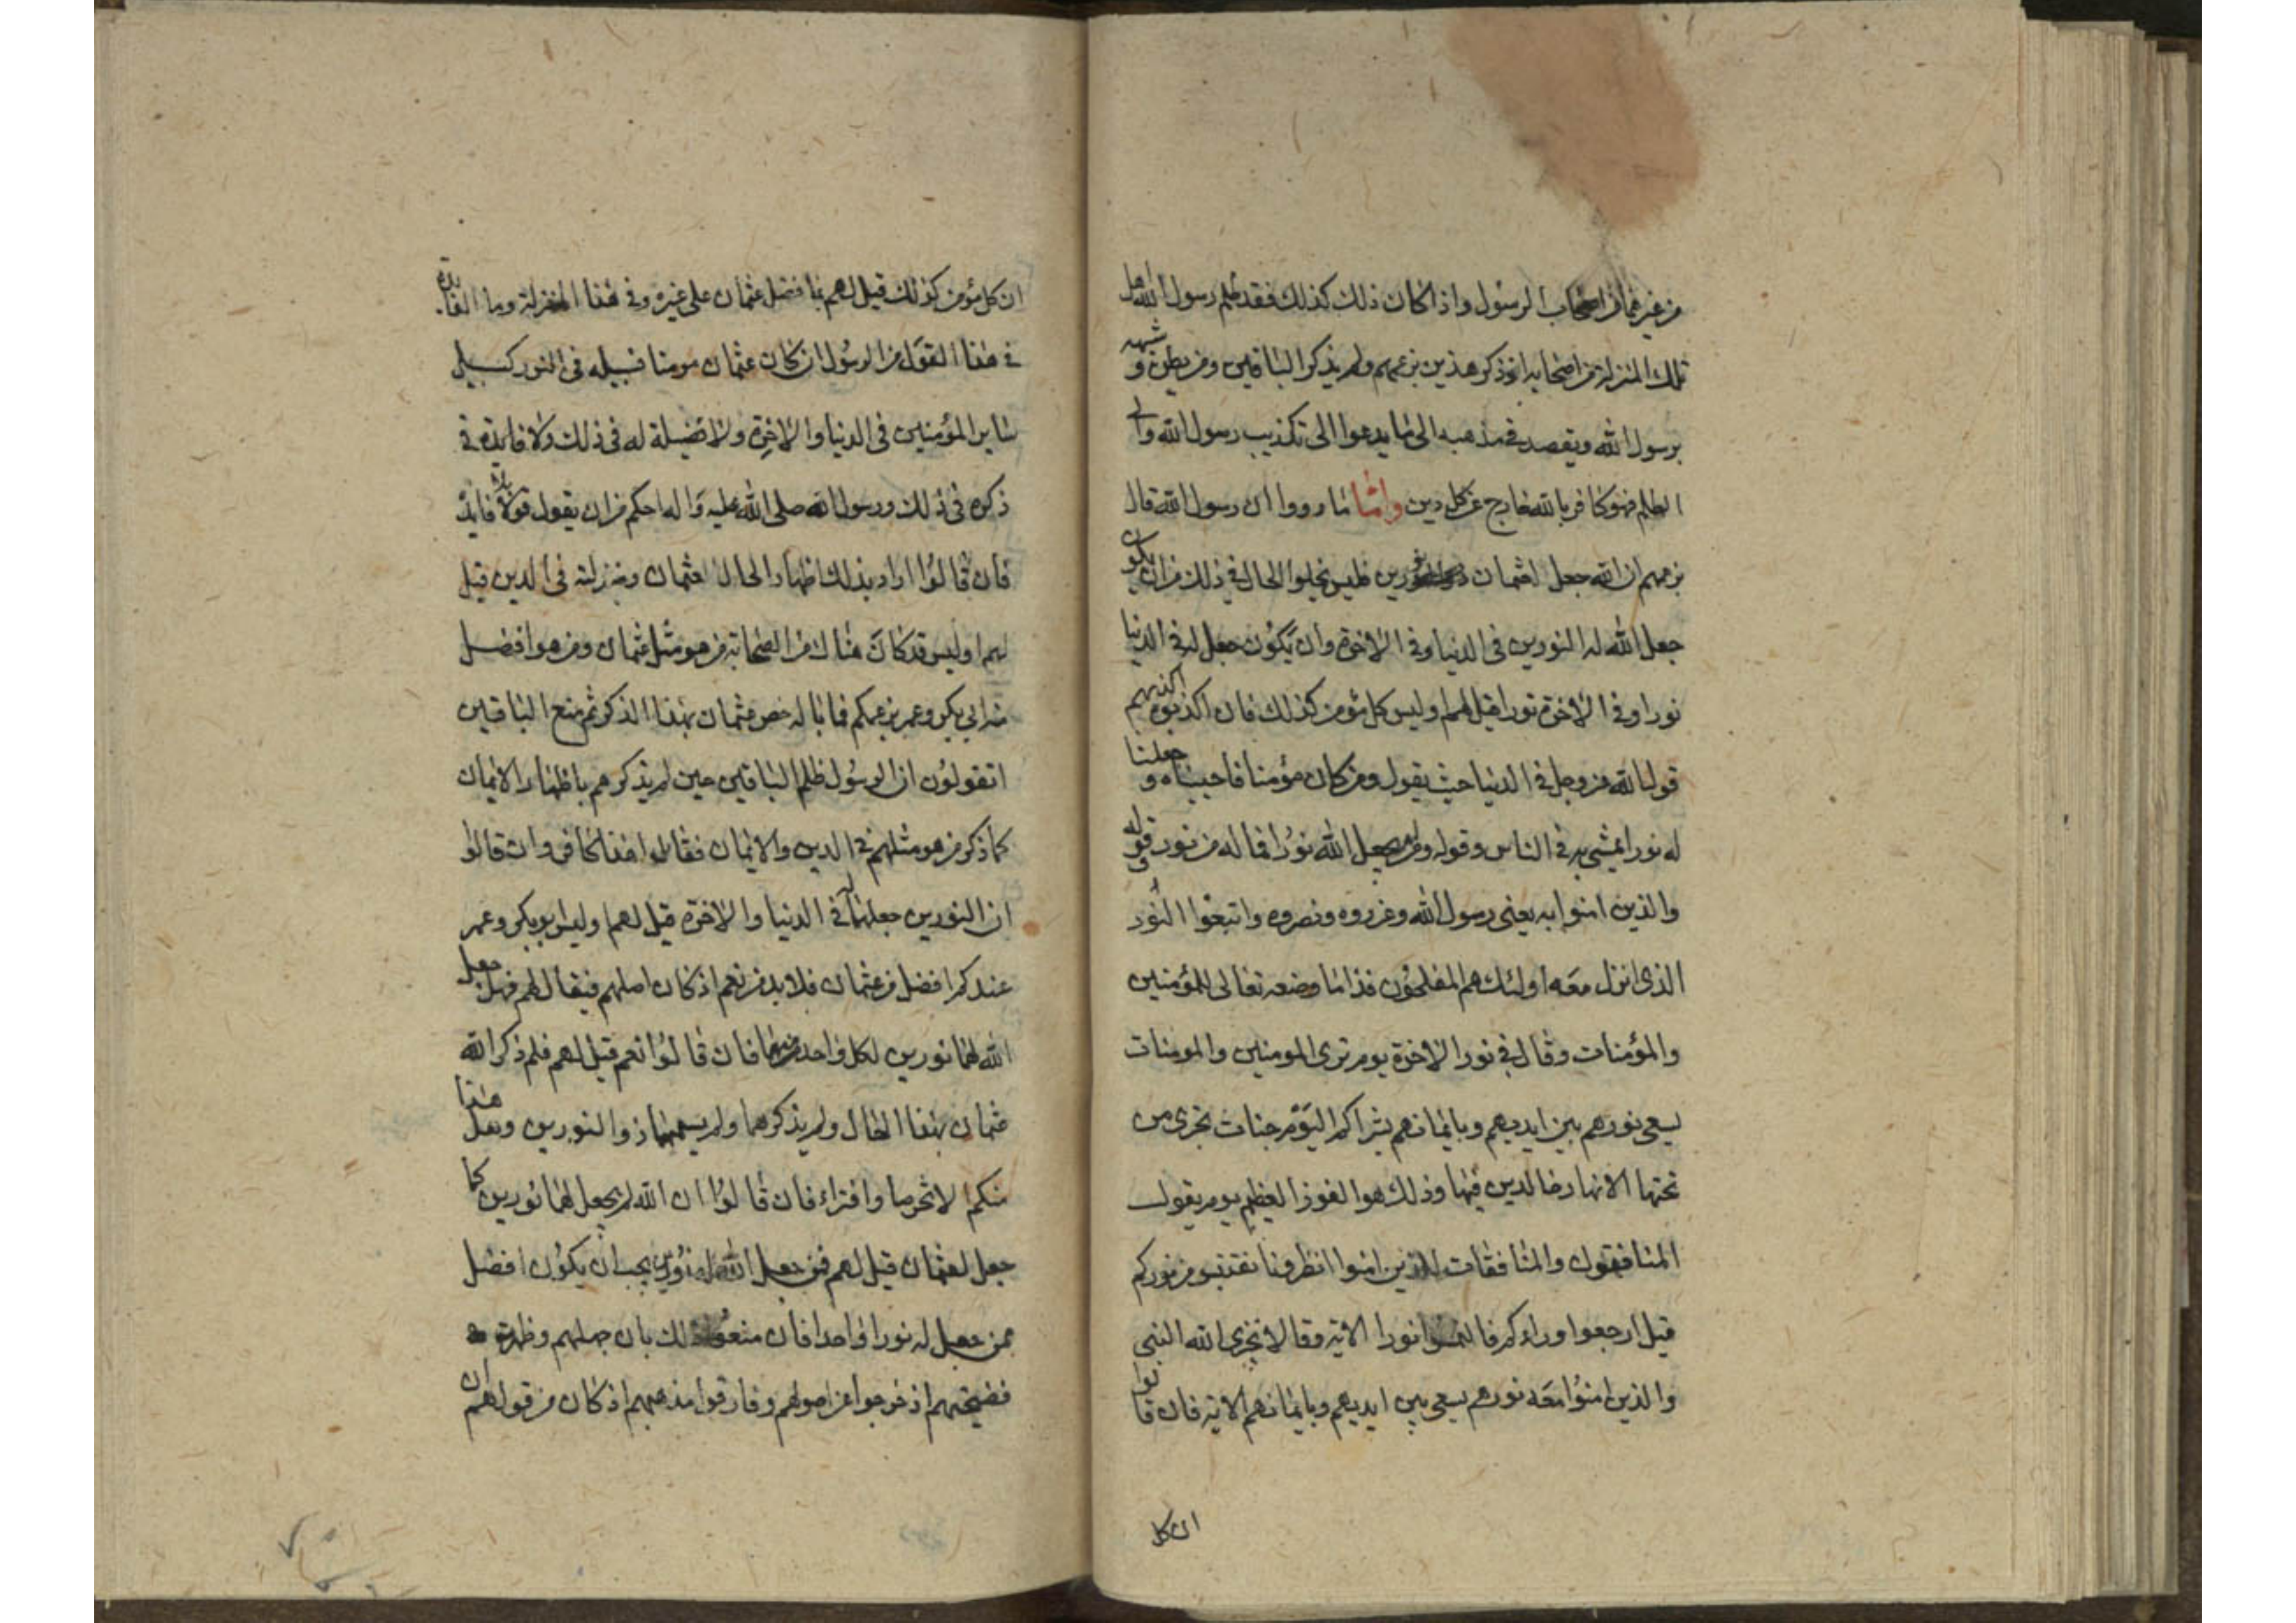 من غير عثمان من اصحاب الرسول واذا كان ذلك كذلك فقد ظلم رسول الله اهل
تلك المنزلة من اصحابه اذ ذكر هذين بزعمهم ولم يذكر الباقين ومن يطعن و شبهه
برسول الله ويقصد في مذهبه الى ما يدعوا الى تكذيب رسول الله والى
الظلم فهو كافر بالله خارج عن كل دين واما ما رووا ان رسول الله قال
بزعمهم ان الله جعل لعثمان نورين فليس يخلوا الحال في ذلك من ان يكون
جعل الله له النورين في الدنيا وفي الاخرة وان يكون جعل له في الدنيا
نورا وفي الاخرة نورا قيل لهم اوليس كل مؤمن كذلك فان اكذبوه اكذبهم
قول الله عز وجل في الدنيا حيث يقول ومن كان مؤمنا فاحييناه و جعلنا
له نورا يمشي به في الناس وقوله ومن لم يجعل الله نورا فما له من نور وقوله
والذين امنوا به يعني رسول الله وعزروه ونصروه واتبعوا النور
الذي انزل معه اولئك هم المفلحون فذا ما وضعه تعالى للمؤمنين
والمؤمنات وقال في نور الاخرة يوم ترى المومنين والمومنات
يسعى نورهم بين ايديهم وبايمانهم بشراكم اليوم جنات تجري من
تحتها الانهار خالدين فيها وذلك هو الفوز العظيم يوم يقول
المنافقون والمنافقات للذين امنوا انظرونا نقتبس من نوركم
قيل ارجعوا وراءكم فالتمسوا نورا الاية وقال لا يخزي الله النبي
والذين امنوا معه نورهم يسعى بين ايديهم وبايمانهم الاية فان قالوا
ان كل
ان كل مؤمن كذلك قيل لهم فما فضل عثمان على غيره وفي هذا المنزلة وما الفايدة
في هذا القول من الرسول ان كان عثمان مومنا فسبيله في النور كسبيل
ساير المؤمنين في الدنيا والاخرة ولا فضيلة له في ذلك ولا فايدة في
ذكره في ذلك ورسول الله صلى الله عليه واله احكم من ان يقول قولا بلا فايدة
فان قالوا اراد بذلك اظهار الحال لعثمان ومنزلته في الدين قيل
لهم اوليس قد كان هنالك من الصحابة من هو مثل عثمان ومن هو افضل
منه ابي بكر وعمر بزعمكم فما باله خص عثمان بهذا الذكر ثم منع الباقين
اتقولون ان الرسول ظلم الباقين حين لم يذكرهم باظهار الايمان
كما ذكر من هو مثلهم في الدين والايمان فقالوا هذا كافر وان قالوا
ان النورين جعلهما له في الدنيا والاخرة قيل لهم اوليس ابو بكر وعمر
عندكم افضل من عثمان فلا بد من نعم اذ كان اصلهم فيقال لهم فهل جعل
الله لهما نورين لكل واحد منهما فان قالوا نعم قيل لهم فلم ذكر الله
عثمان بهذا الحال ولم يذكرهما ولم يسمهما ذوا النورين وهل هذا
منكم الا تخرصا وافتراء فان قالوا ان الله لم يجعل لهما نورين كما
جعل لعثمان قيل لهم فمن جعل الله له نورين يجب ان يكون افضل
ممن جعل له نورا واحدا فان منعوا ذلك بان جهلهم وظهرت
فضيحتهم اذ خرجوا عن اصولهم وفارقوا مذهبهم اذ كان من قولهم ان